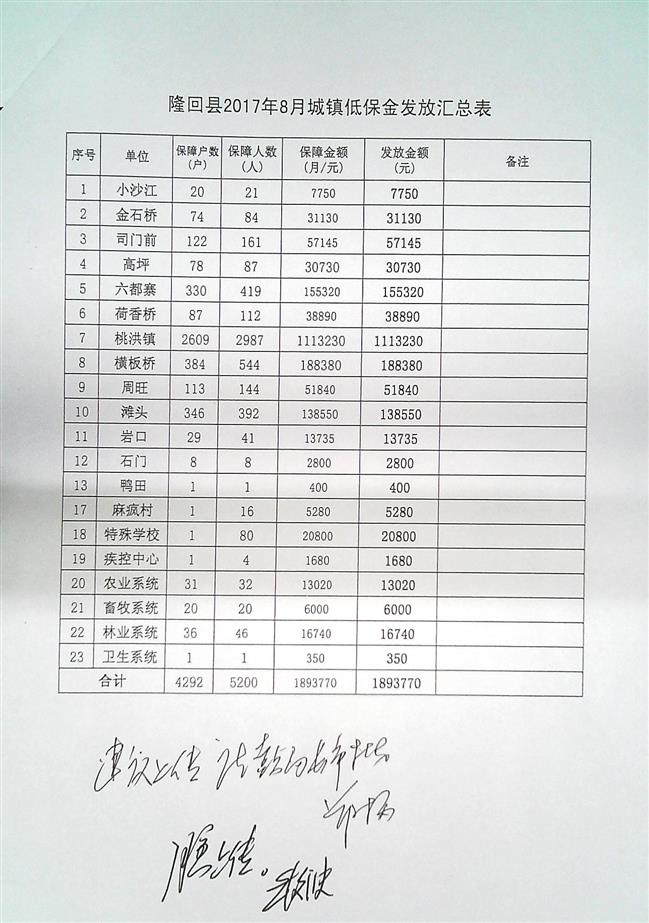 隆回县2017年8月城镇低保金发放汇总表
序号 单位 保障户数(户) 保障人数(人) 保障金额(月/元) 发放金额(元) 备注
1 小沙江 20 21 7750 7750
2 金石桥 74 84 31130 31130
3 司门前 122 161 57145 57145
4 高坪 78 87 30730 30730
5 六都寨 330 419 155320 155320
6 荷香桥 87 112 38890 38890
7 桃洪镇 2609 2987 1113230 1113230
8 横板桥 384 544 188380 188380
9 周旺 113 144 51840 51840
10 滩头 346 392 138550 138550
11 岩口 29 41 13735 13735
12 石门 8 8 2800 2800
13 鸭田 1 1 400 400
17 麻疯村 1 16 5280 5280
18 特殊学校 1 80 20800 20800
19 疾控中心 1 4 1680 1680
20 农业系统 31 32 13020 13020
21 畜牧系统 20 20 6000 6000
22 林业系统 36 46 16740 16740
23 卫生系统 1 1 350 350
合计 4292 5200 1893770 1893770
建议上传